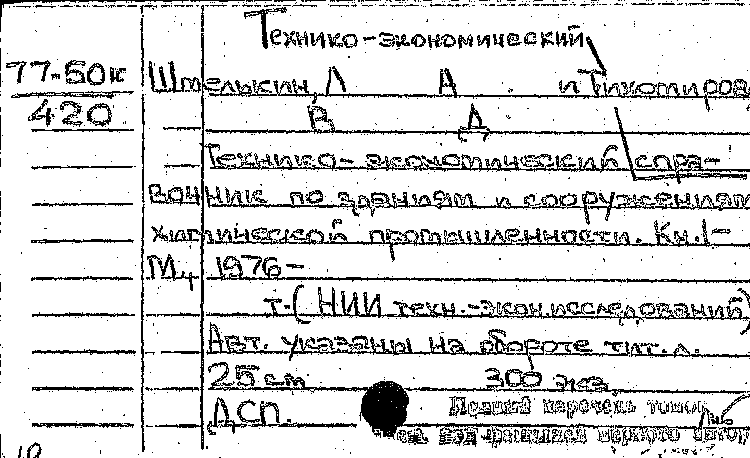 Технико-экономический
77-50к Штелькин, Л А и Тихомиров,
420 В Д
Технико-экономический спра-
вочник по зданиям и сооружениям
химической промышленности. Кн.1-
М., 1976-
т.(НИИ техн.-экон.исследований)
Авт. указаны на обороте тит.л.
25 см 300 экз.
ДСП. Полный перечень томов
под фамилией первого автор